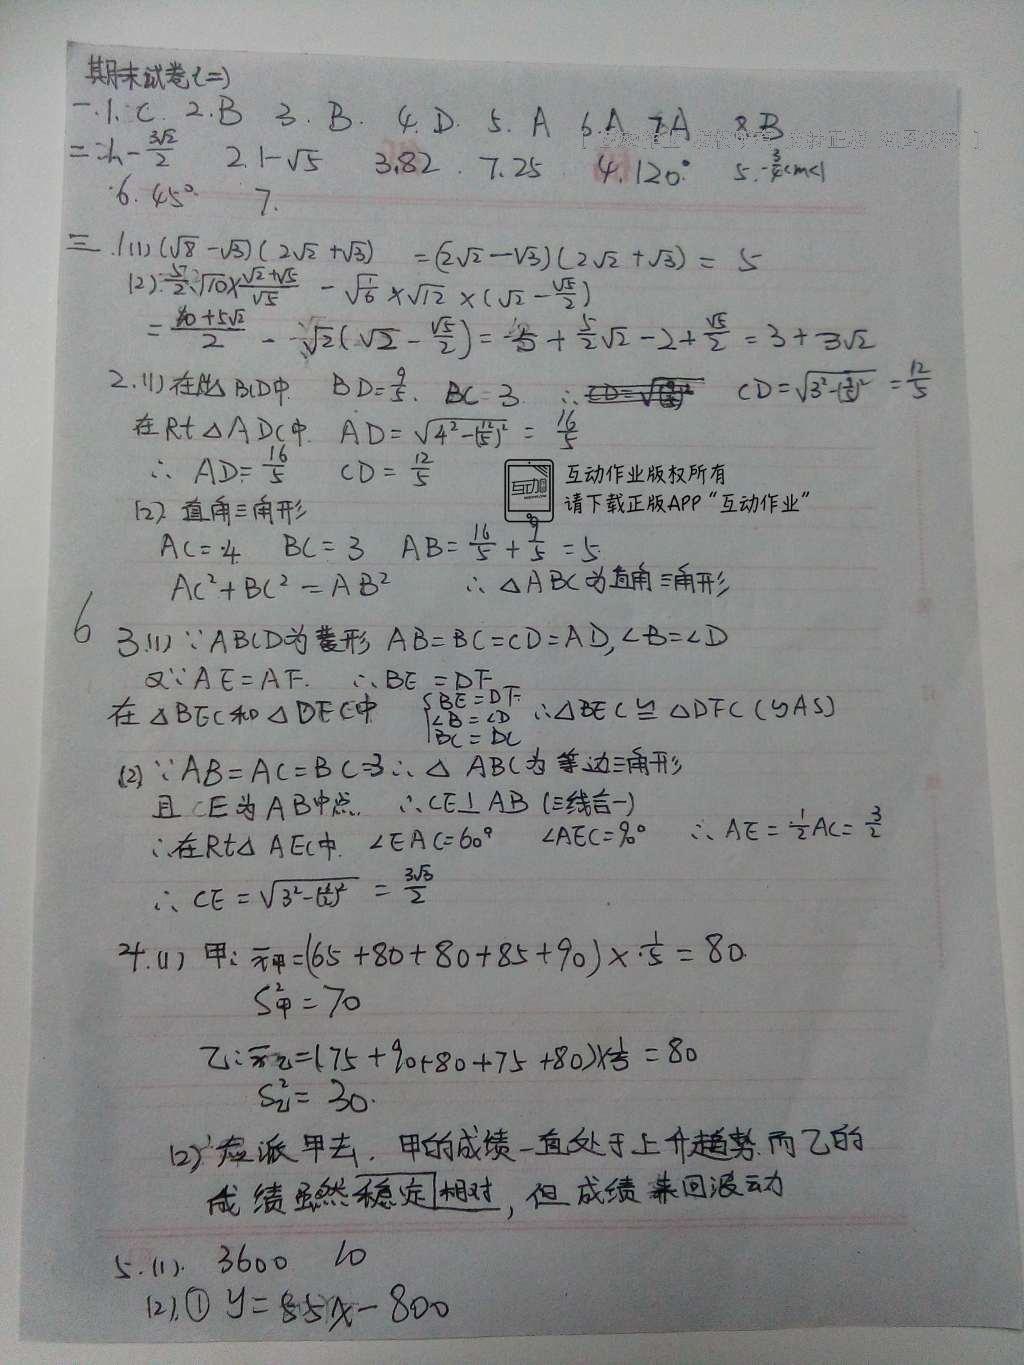 期末试卷(二)
一.1.C. 2.B 3.B. 4.D. 5.A 6.A 7.A 8.B
二:1.-3√2/2 2.1-√5 3.82 7.25 4.120° 5.-3/4<m<1
6.45° 7.
三.1(1)(√8-√3)(2√2+√3) =(2√2-√3)(2√2+√3)=5
(2).5/2√10×(√2+√5)/√5 -√(1/6)×√12×(√2-√5/2)
=(10+5√2)/2 -√2(√2-√5/2)=5+5/2√2-2+√5/2=3+3√2
2.(1)在△BCD中 BD=9/5. BC=3. ∴ CD=√(3²-(9/5)²)=12/5
在Rt△ADC中. AD=√(4²-(12/5)²)=16/5
∴ AD=16/5 CD=12/5
互动作业版权所有
请下载正版APP“互动作业”
(2) 直角三角形
AC=4 BC=3 AB=16/5+9/5=5
AC²+BC²=AB² ∴△ABC为直角三角形
6
3.(1)∵ABCD为菱形 AB=BC=CD=AD,∠B=∠D
又∵AE=AF. ∴BE=DF
在△BEC和△DFC中 {BE=DF ∠B=∠D BC=DC ∴△BEC≌△DFC(SAS)
(2)∵AB=AC=BC=3∴△ABC为等边三角形
且CE为AB中点. ∴CE⊥AB(三线合一)
∴在Rt△AEC中. ∠EAC=60° ∠AEC=90° ∴AE=1/2AC=3/2
∴CE=√(3²-(3/2)²)=3√3/2
4.(1)甲: x̄甲=(65+80+80+85+90)×1/5=80.
S²甲=70
乙:x̄乙=(75+90+80+75+80)×1/5=80
S²乙=30.
(2)应派甲去.甲的成绩一直处于上升趋势.而乙的
成绩虽然稳定相对,但成绩来回波动
5.(1). 3600 10
(2).①y=85x-800